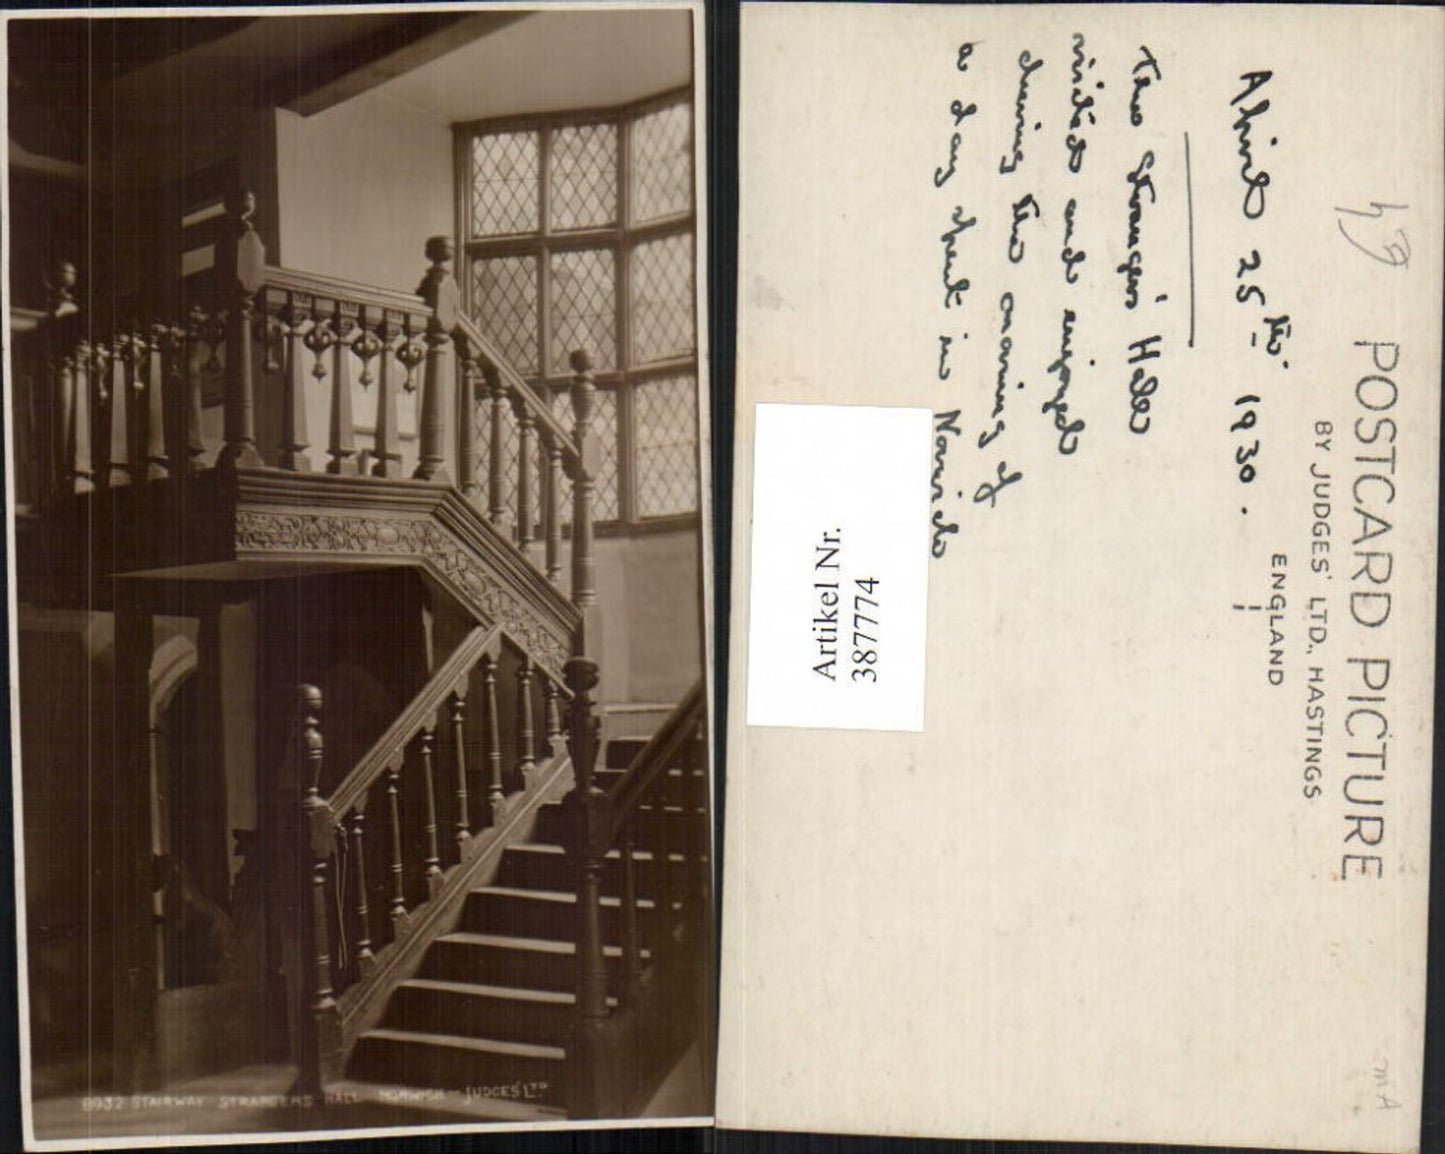 8932 STAIRWAY STRANGERS HALL NORWICH - JUDGES LTD
POSTCARD PICTURE
BY JUDGES' LTD., HASTINGS
ENGLAND
April 25th 1930.
The Stranger's Hall
visited and enjoyed
during the morning of
a day spent in Norwich
Artikel Nr.
3877774